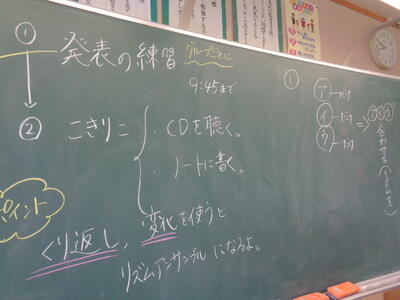 ① 発表の練習 グループごとに
9:45まで
② こきりこ
・CDを聴く。
・ノートに書く。
ポイント
くり返し、変化を使うと
リズムアンサンブルになるよ。
①
ア だけ
イ だけ
ウ だけ
⇒ アイウ
合わせる(リズムを)